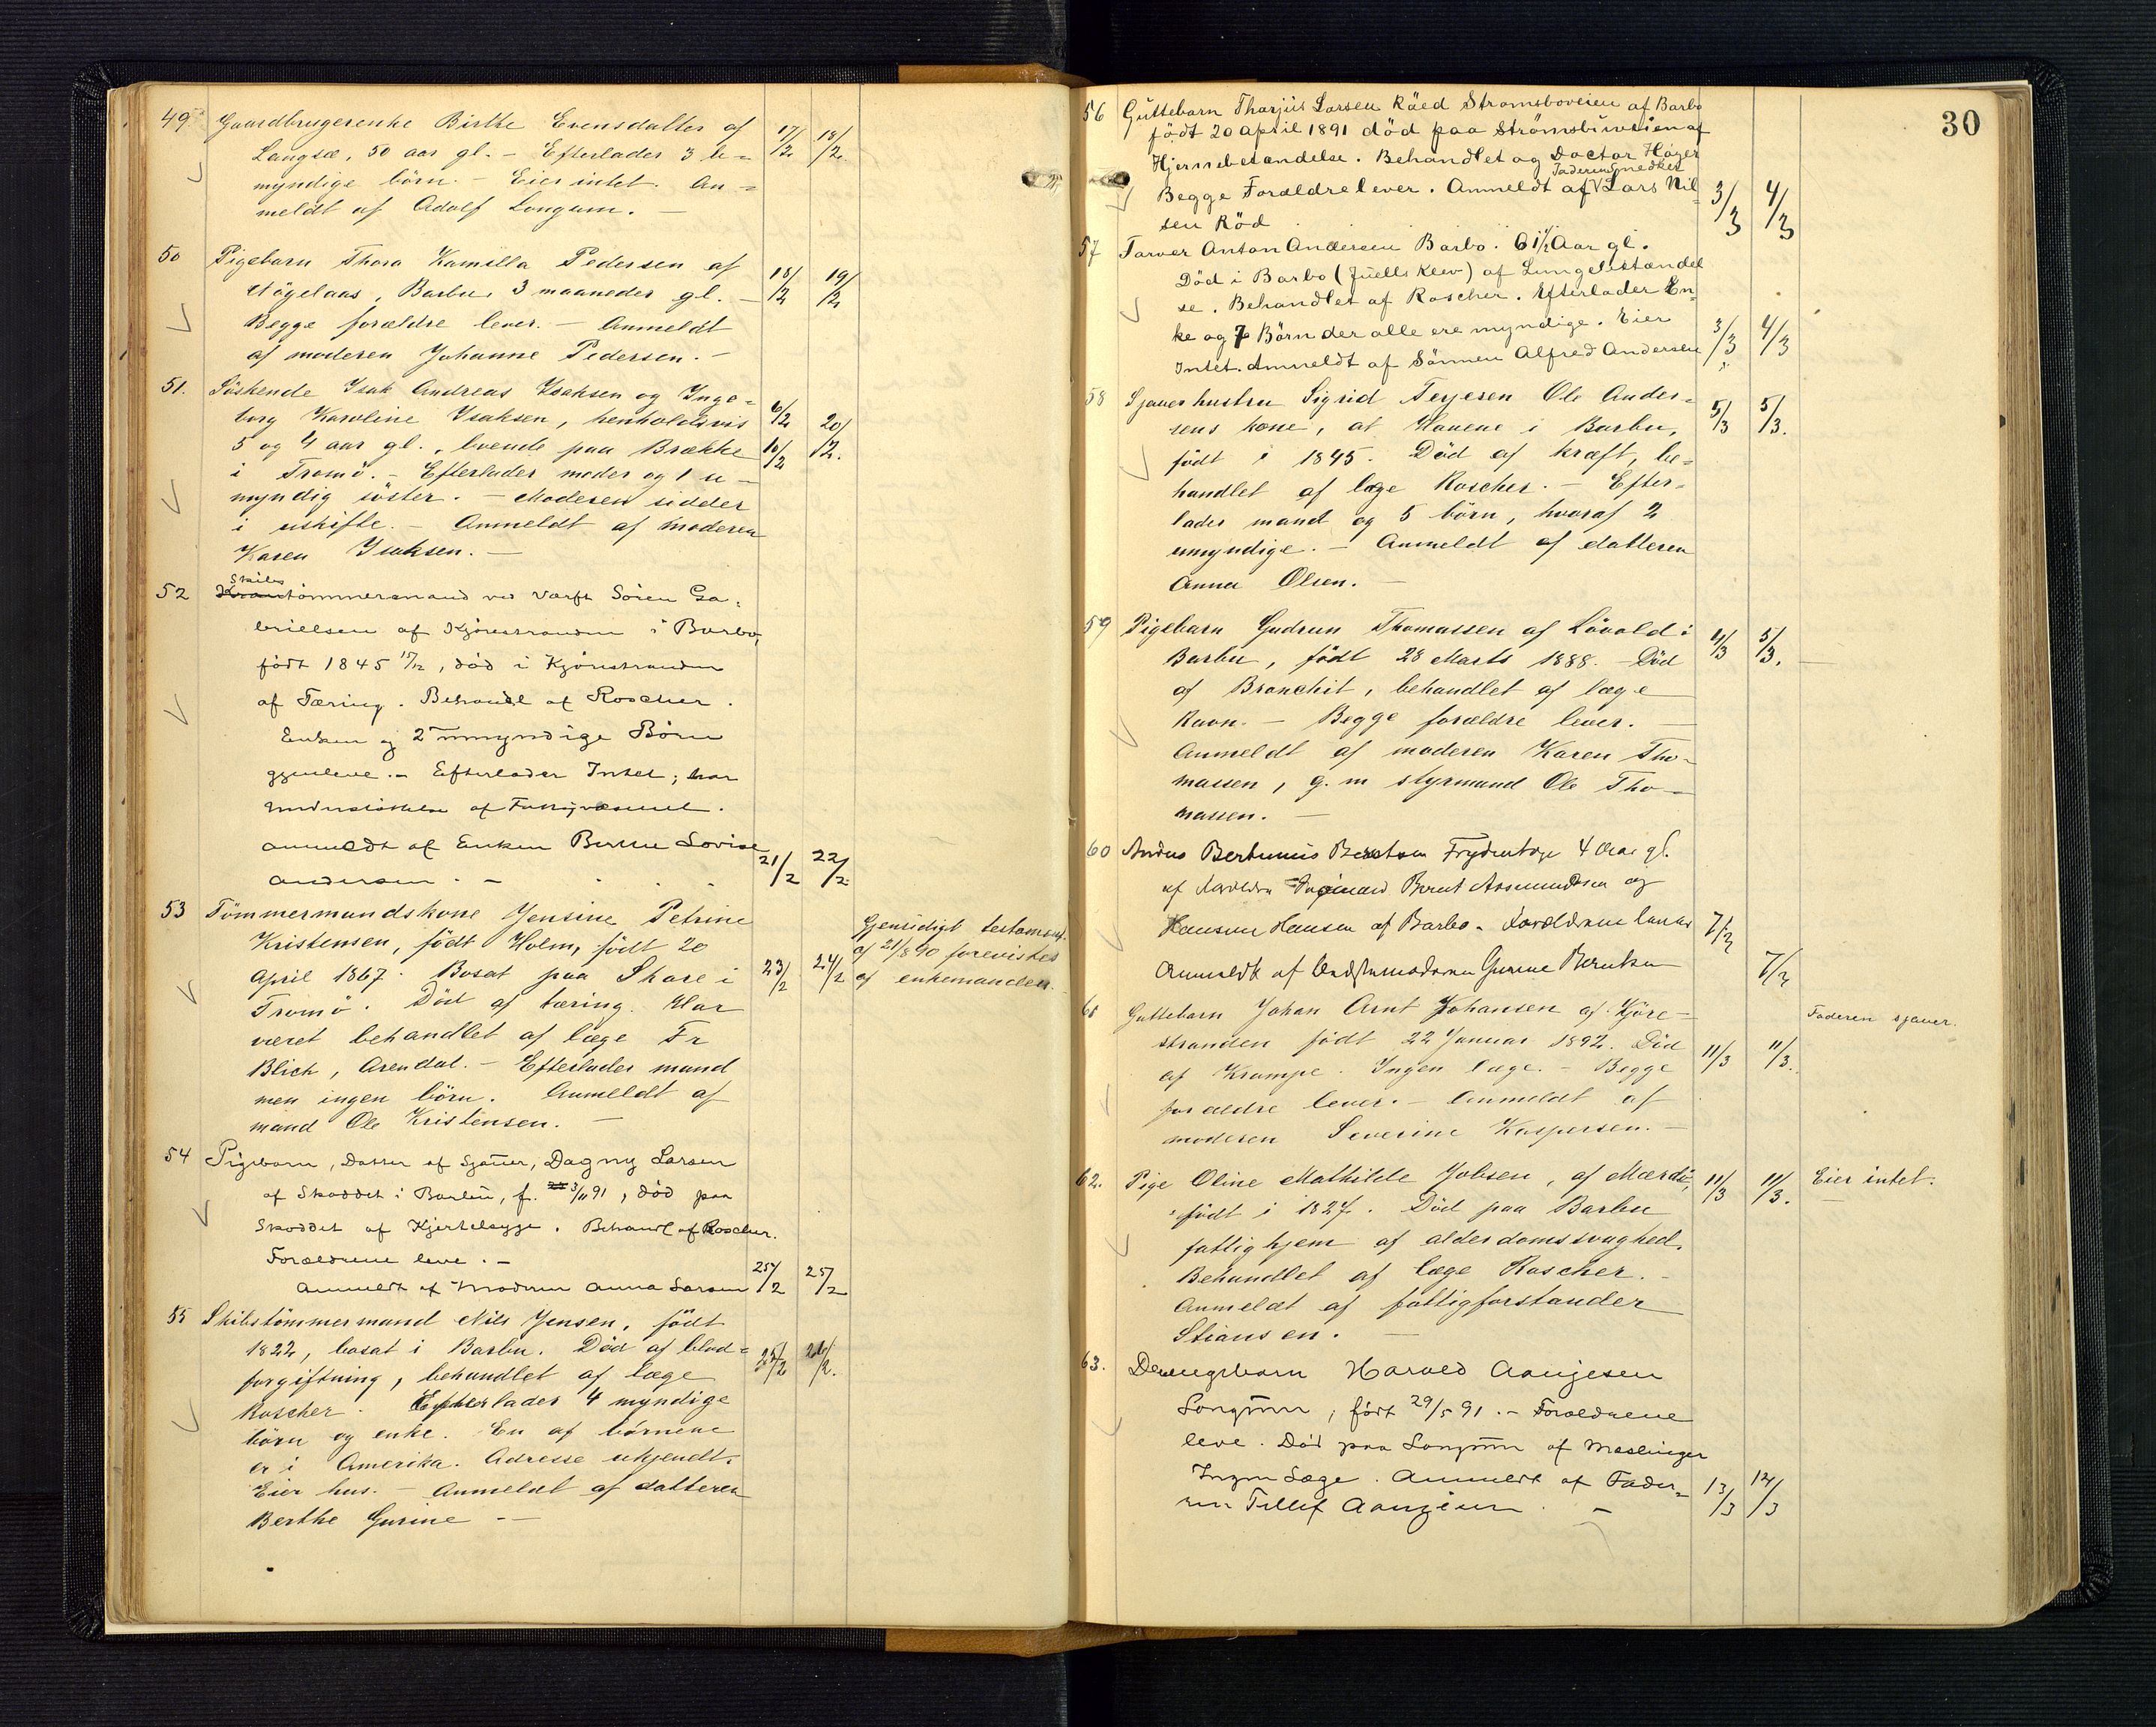 49 Gaardbrugerenke Birthe Evensdatter af 17/2 18/2
Langsæ, 50 aar gl. - Efterlader 3 u=
myndige börn. - Eier intet. An=
meldt af Adolf Longum. -
50 Pigebarn Thora Kamilla Pedersen af 18/2 19/2
Nögelaas, Barbu, 3 maaneder gl. -
Begge forældre lever. - Anmeldt
af moderen Johanne Pedersen. -
51. Söskende Isak Andreas Isaksen og Inge=
borg Karoline Isaksen, henholdsvis 6/2 20/2.
5 og 4 aar gl., boende paa Brække 10/2
i Tromö. - Efterlader moder og 1 u-
myndig söster. - Moderen sidder
i uskifte. - Anmeldt af moderen
Karen Isaksen. -
Skibs
52 tömmermand ved Værft Sören Ga=
brielsen af Kjörestranden i Barbo,
födt 1845 15/12, död i Kjörestranden
af Tæring. Behandl af Roscher.
Enken og 2 umyndige Börn
gjenleve. - Efterlader Intet; har
Understöttelse af Fattigvæsenet.
Anmeldt af Enken Berthe Lovise
Andersen. - 21/2 22/2
53 Tömmermandskone Jensine Petrine
Kristensen, födt Holm, födt 20
April 1867. Bosat paa Skare i 23/2 24/2
Tromö. Död af tæring. Har
været behandlet af læge Fr
Blich, Arendal. - Efterlader mand
men ingen börn. Anmeldt af
mand Ole Kristensen. -
Gjensidigt testament.
af 21/8 90 forevistes
af enkemanden.
54 Pigebarn, Datter af Sjauer, Dagny Larsen
af Skoddet i Barbu, f. 3/11 91, död paa
Skoddet af Kjertelsyge. Behandl af Roscher.
Forældrene leve. -
Anmeldt af Moderen Anna Larsen 25/2 25/2
55 Skibstömmermand Nils Jensen, födt
1822, bosat i Barbu. Död af blod= 25/2 26/2.
forgiftning, behandlet af læge
Roscher. Efterlader 4 myndige
börn og enke. En af börnene
er i Amerika. Adresse ukjendt.
Eier hus. - Anmeldt af datteren
Berthe Gurine -
30
56 Guttebarn Tharjus Larsen Röed Strömsboveien af Barbo
födt 20 april 1891 död paa Strömsbuveien af
Hjernebetændelse. Behandlet og Doctor Höyer
Faderen Snedker
Begge Forældre lever. Anmeldt af Lars Nil 3/3 4/3
sen Röd
57 Farver Anton Andersen Barbo. 61½ Aar gl.
Död i Barbo (Juells Klev) af Lungebetændel
se. Behandlet af Roscher. Efterlader En=
ke og 7 Börn der alle ere myndige. Eier
Intet. Anmeldt af Sönnen Alfred Andersen 3/3 4/3
58 Sjauerhustru Sigrid Terjesen Ole Ander= 5/3 5/3.
sens kone, at Havene i Barbu,
födt i 1845. Död af kræft, be=
handlet af læge Roscher. - Efter=
lader mand og 5 börn, hvoraf 2
umyndige. - Anmeldt af datteren
Anna Olsen. -
59 Pigebarn Gudrun Thomassen af Lövold i 4/3 5/3.
Barbu, födt 28 Marts 1888. - Död
af Bronchit, behandlet af læge
Ravn. - Begge forældre lever. -
Anmeldt af moderen Karen Tho-
massen, g. m styrmand Ole Tho-
massen. -
60 Bertinius Berntsen 4 Aar gl.
af Bernt Assmundsen og
Hansen af Barbo. Forældrene lever 7/3
Anmeldt af Gurine Berntsen 7/3
61 Guttebarn Johan Arnt Johansen af Kjöre-
stranden födt 22 Januar 1892. Död 11/3 11/3.
af Krampe. Ingen læge. - Begge
forældre lever. - Anmeldt af
moderen Severine Kaspersen. -
Faderen sjauer.
62. Pige Oline Mathilde Jobsen, af Mærdö, 11/3 11/3. Eier intet.
födt i 1827. Död paa Barbu
fattighjem af alderdomssvaghed.
Behandlet af læge Roscher. -
Anmeldt af fattigforstander
Stiansen. -
63. Drengebarn Harald Aanjesen
Longum, födt 29/5 91. - Forældrene
leve. Död paa Longum af Meslinger
Ingen Læge. Anmeldt af Fader= 13/3 14/3
en Tellef Aanjesen. -